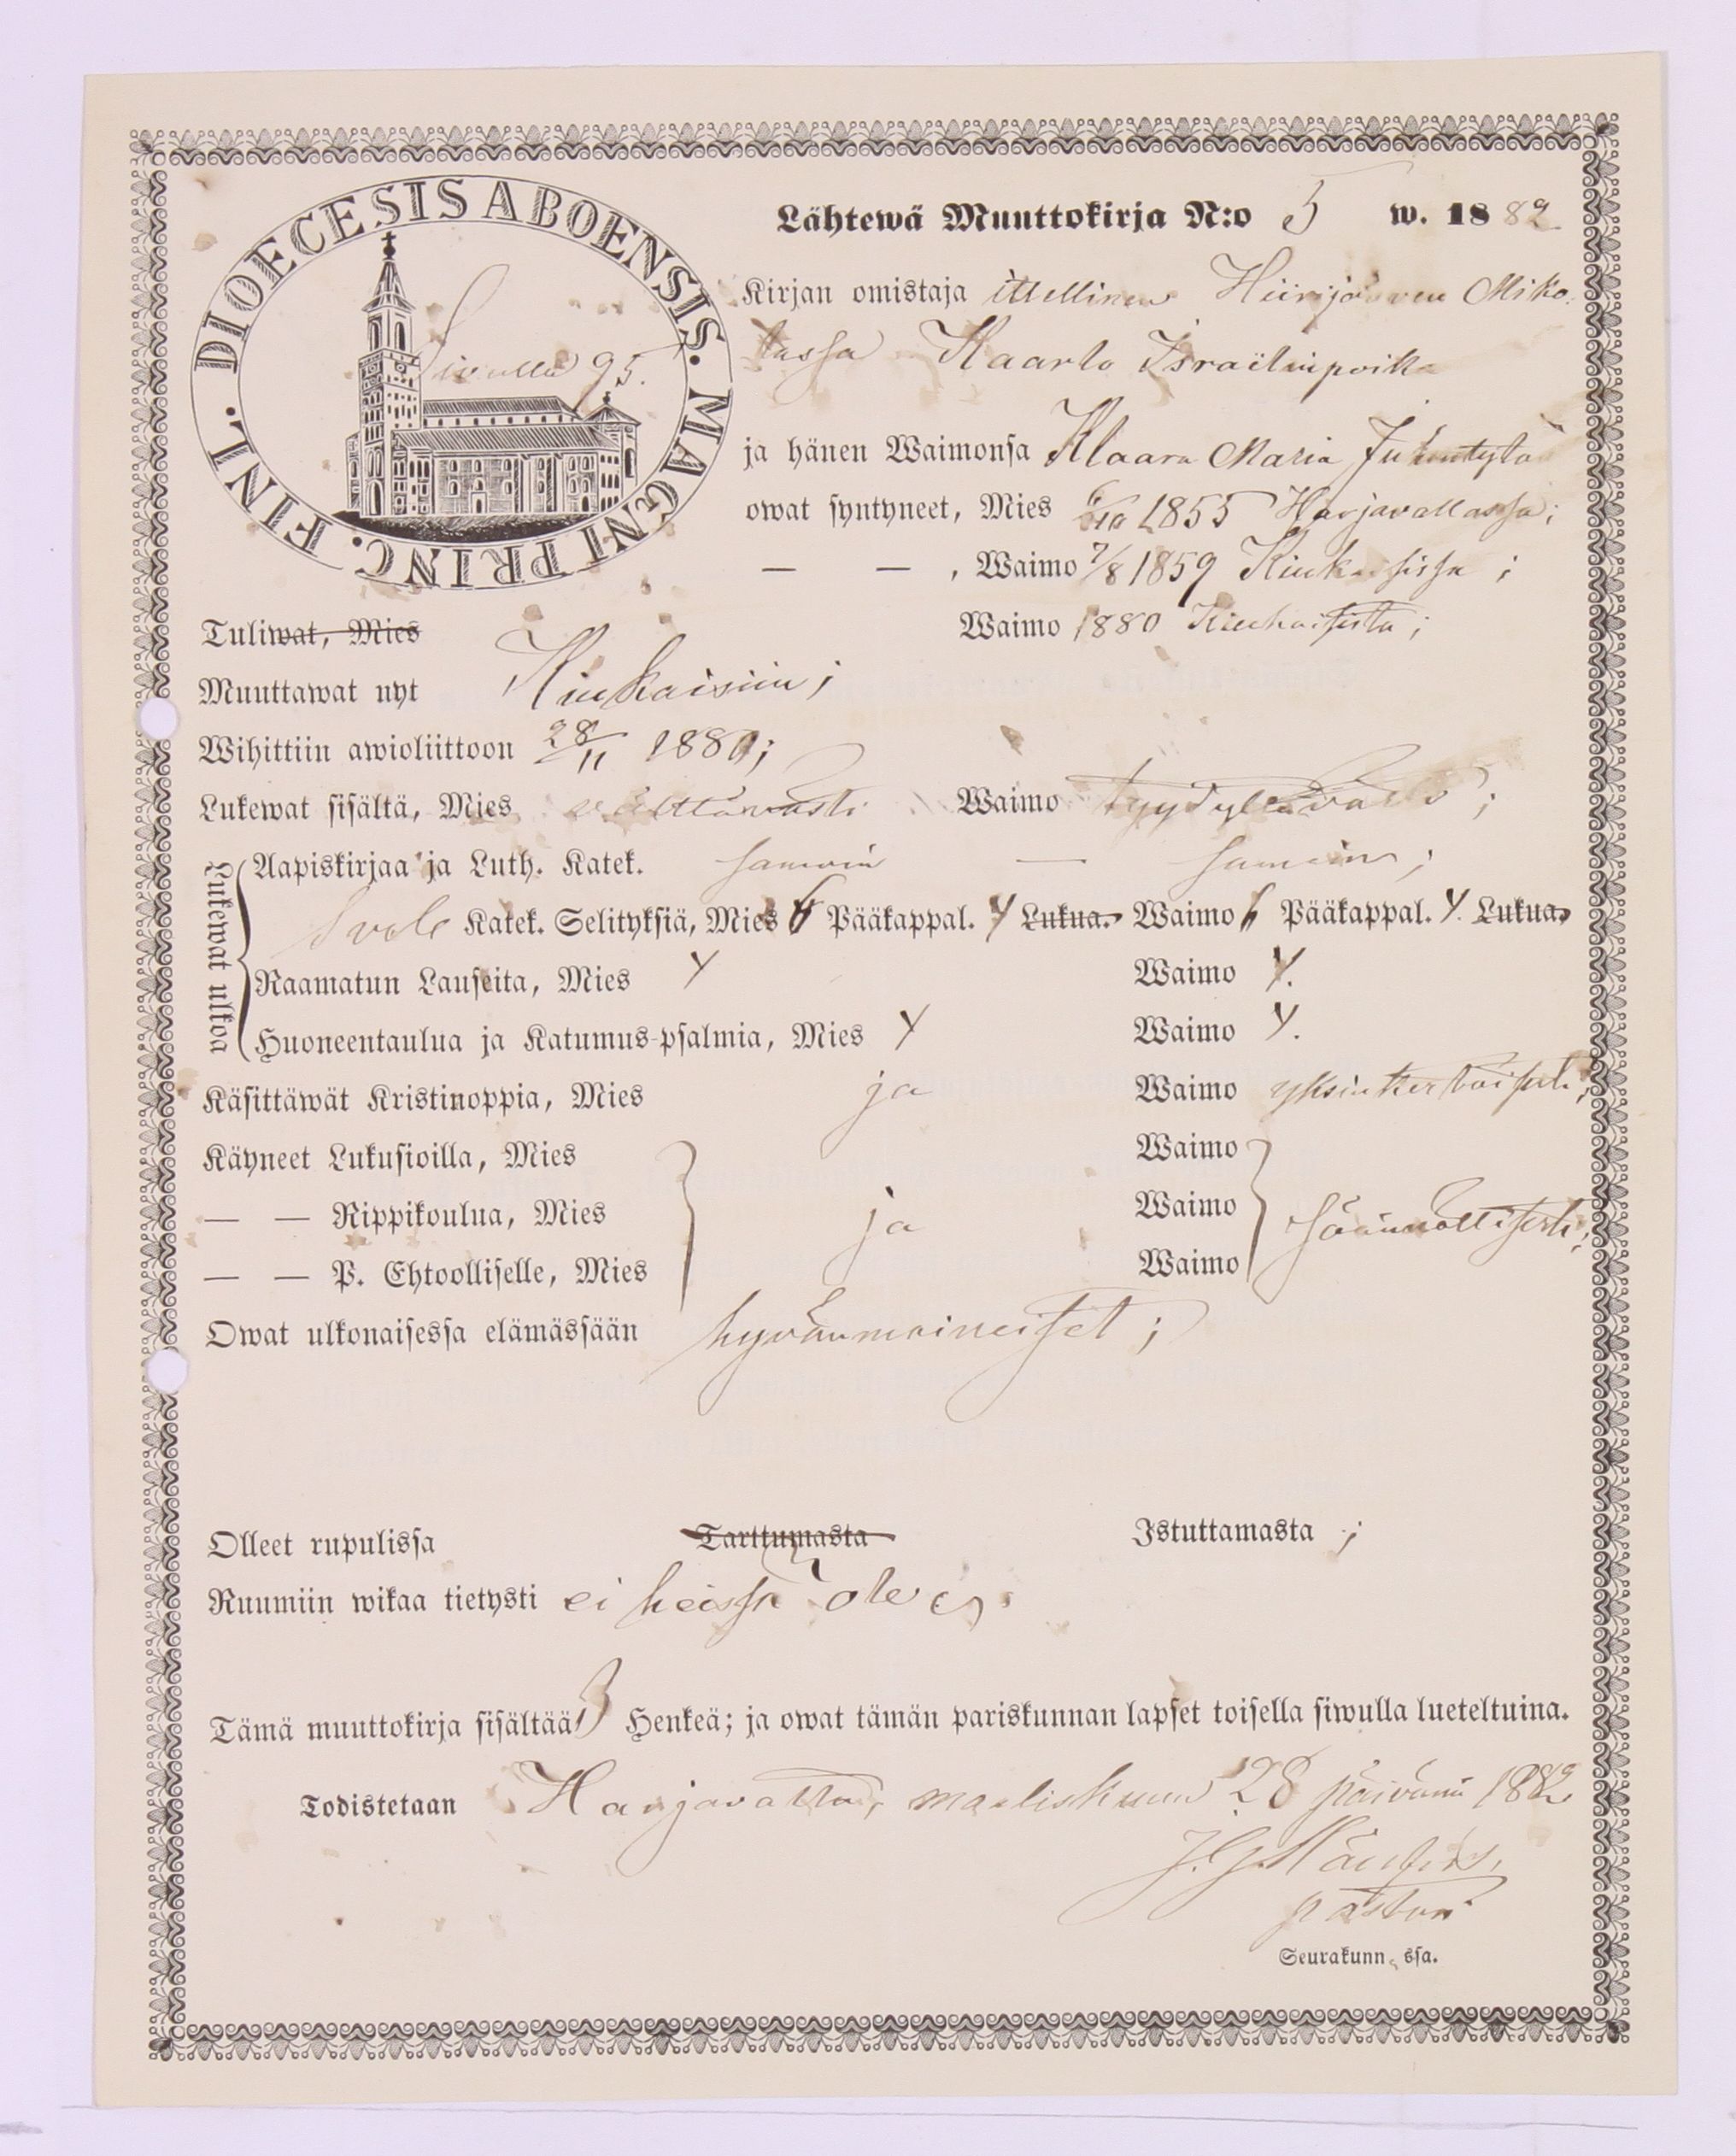 DIOECESIS ABOENSIS. MAGNI PRINC. FINL.
Sivulla 95.
Lähtewä Muuttokirja N:o 5 w. 1882
Kirjan omistaja ittellinen Hiirijärven Miko-
lassa Kaarlo Israëlinpoika
ja hänen Waimonsa Klaara Maria Juhontytär
owat syntyneet, Mies 6/10 1855 Harjavallassa;
— — , Waimo 7/8 1859 Kiukaisissa;
Tuliwat, Mies Waimo 1880 Kiukaisista;
Muuttawat nyt Kiukaisiin;
Wihittiin awioliittoon 28/11 1880;
Lukewat sisältä, Mies välttävästi Waimo tyydyttävästi;
Lukewat ulkoa
Aapiskirjaa ja Luth. Katek. samoin — samoin;
Katek. Selityksiä, Mies 6 Pääkappal. Y Lukua. Waimo 6 Pääkappal. Y. Lukua.
Raamatun Lauseita, Mies Y Waimo Y.
Huoneentaulua ja Katumus-psalmia, Mies Y Waimo Y.
Käsittäwät Kristinoppia, Mies ja Waimo yksinkertaisesti;
Käyneet Lukusioilla, Mies Waimo
— — Rippikoulua, Mies ja Waimo säännöllisesti;
— — P. Ehtoolliselle, Mies Waimo
Owat ulkonaisessa elämässään hyvänmaineiset;
Olleet rupulissa Tarttumasta Istuttamasta;
Ruumiin wikaa tietysti ei heissä ole
Tämä muuttokirja sisältää 3 Henkeä; ja owat tämän pariskunnan lapset toisella siwulla lueteltuina.
Todistetaan Harjavalta, maaliskuun 28 päivänä 1882
J. G.
pastori
Seurakunn ssa.